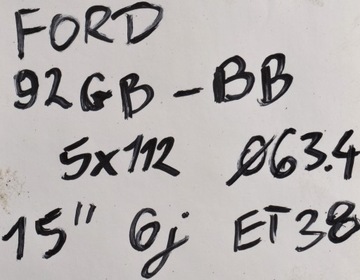 FORD
92GB-BB
5x112 Ø63.4
15" 6j ET38